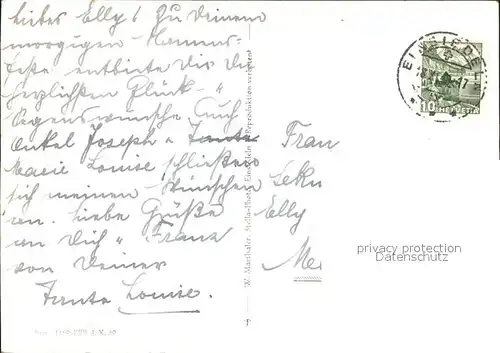 Liebes Elly! Zu Deinem
morgigen Namens-
feste entbiete Dir die
herzlichsten Glück- u
Segenswünsche. Auch
Onkel Joseph u Tante
Marie Louise schließen
sich meinen Wünschen
an. Liebe Grüße
an Dich u Franz
von Deiner
Tante Louise.
W. Marthaler, Stella-Photo, Einsiedeln Reproduktion verboten!
EINSIEDE
10 HELVETIA
Frau
Sekun
Elly
Me
privacy protection
Datenschutz